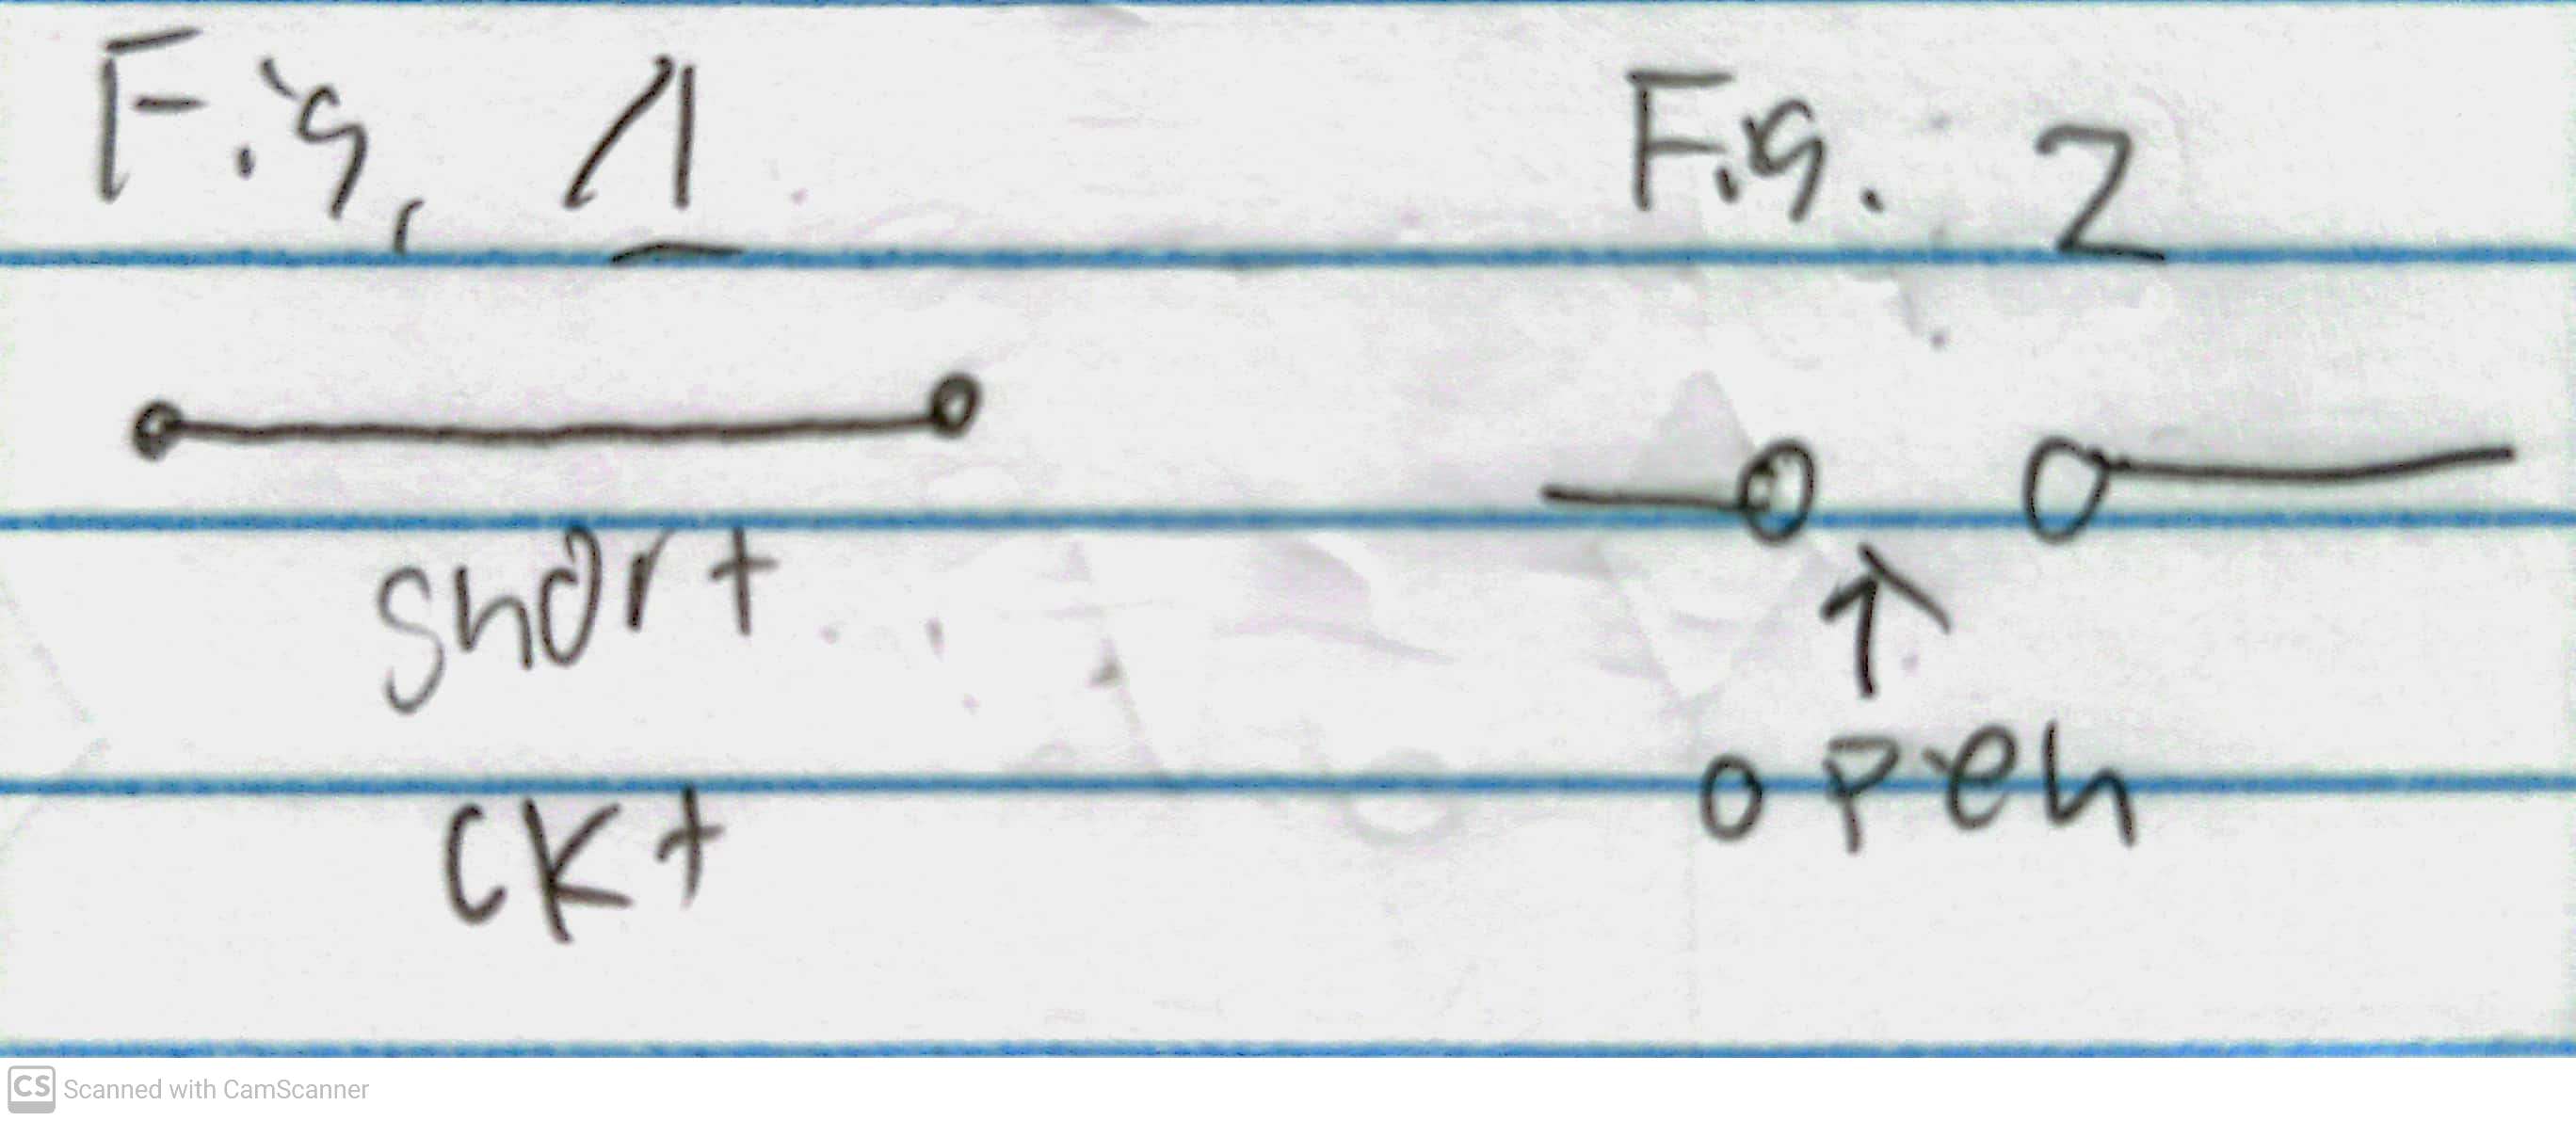 Fig. 1
Fig. 2
short
ckt
open
CS Scanned with CamScanner